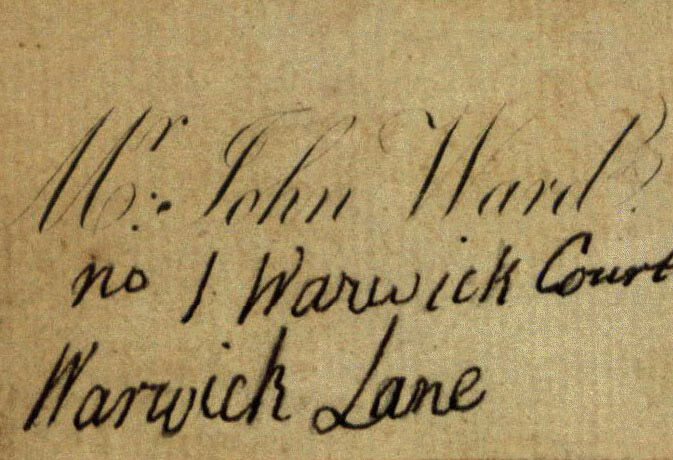 Mr. John Ward.
no 1 Warwick Court
Warwick Lane